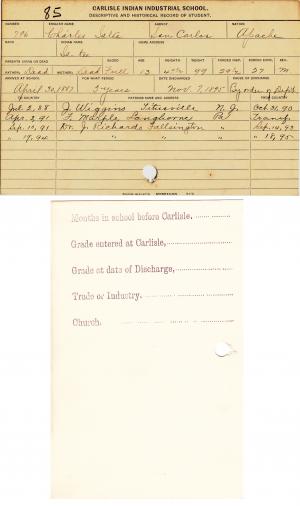 85
CARLISLE INDIAN INDUSTRIAL SCHOOL.
DESCRIPTIVE AND HISTORICAL RECORD OF STUDENT.
NUMBER ENGLISH NAME AGENCY NATION
Charles San Carlos Apache
INDIAN NAME HOME ADDRESS
PARENTS LIVING OR DEAD BLOOD AGE HEIGHT WEIGHT FORCED INSP. FORCED EXPR. SEX
FATHER, Dead MOTHER, Dead Full 13 99 27 M
ARRIVED AT SCHOOL FOR WHAT PERIOD DATE DISCHARGED CAUSE OF DISCHARGE
April 30, 1887 5 years Nov. 7, 1895 By order of
TO COUNTRY PATRONS NAME AND ADDRESS FROM COUNTRY
Jul 2, 88 J. Wiggins Titusville N. J. Oct 31, 90
Apr. 2, 91 F. Marple Langhorne Pa Transf.
Sep. 10, 91 Dr. J. Richards Fallsington " Sep. 14, 93
" 17, 94 " " " " 18, 95
Months in school before Carlisle,
Grade entered at Carlisle,
Grade at date of Discharge,
Trade or Industry.
Church.